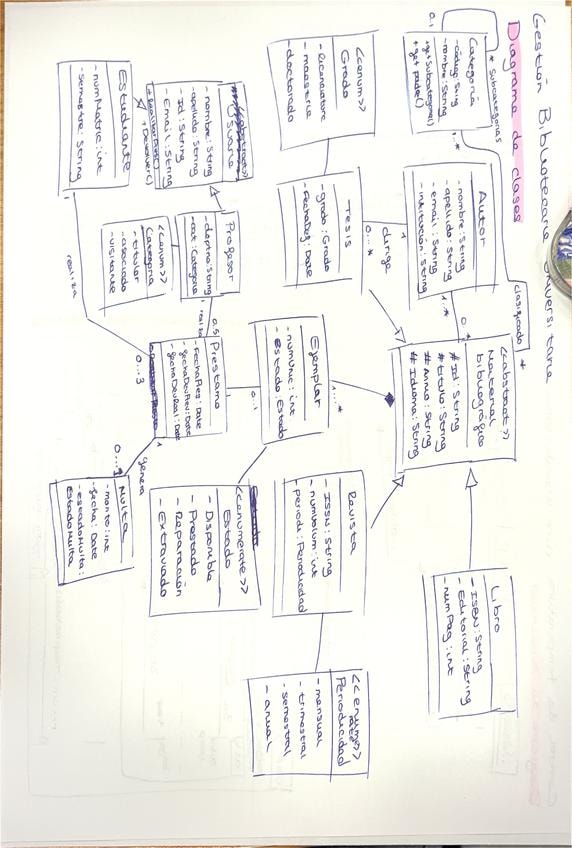 Gestión Bibliotecaria Universitaria
Diagrama de clases
Categoría
- código: String
- nombre: String
+ getSubcategoria()
+ get padre()
0.1
* Subcategorias
1..*
clasificado
*
Autor
- nombre: String
- apellido: String
- email: String
- institución: String
1..*
0..*
<<abstract>>
Material
bibliográfico
# Id: String
# titulo: String
# Annio: String
# Idioma: String
Libro
- ISBN: String
- Editorial: String
- numPag: int
<<enum>>
Grado
- licenciatura
- maestria
- doctorado
Tesis
- grado: Grado
- FechaReg: Date
1
dirige
0...*
Ejemplar
- numUnic: int
- Estado: Estado
1...*
0..1
1
Revista
- ISSN: String
- numVolum: int
- periodi: Periodicidad
<<enumerate>>
Periodicidad
- mensual
- trimestral
- semestral
- anual
<<enumerate>>
Estado
- Disponible
- Prestado
- Reparación
- Extraviado
Usuario
- nombre: String
- apellido: String
- Id: String
- Email: String
+ Devolver()
Profesor
- deptno: String
- cat: Categoria
1
realiza
0.5
<<enum>>
Categoria
- titular
- asociado
- visitante
Estudiante
- numMatric: int
- semestre: String
1
realiza
0...3
Prestamo
- FechaReg: Date
- fechaDevPrev: Date
- fechaDevReal: Date
1
genera
Multa
- monto: int
- fecha: Date
- estadoMulta:
EstadoMulta